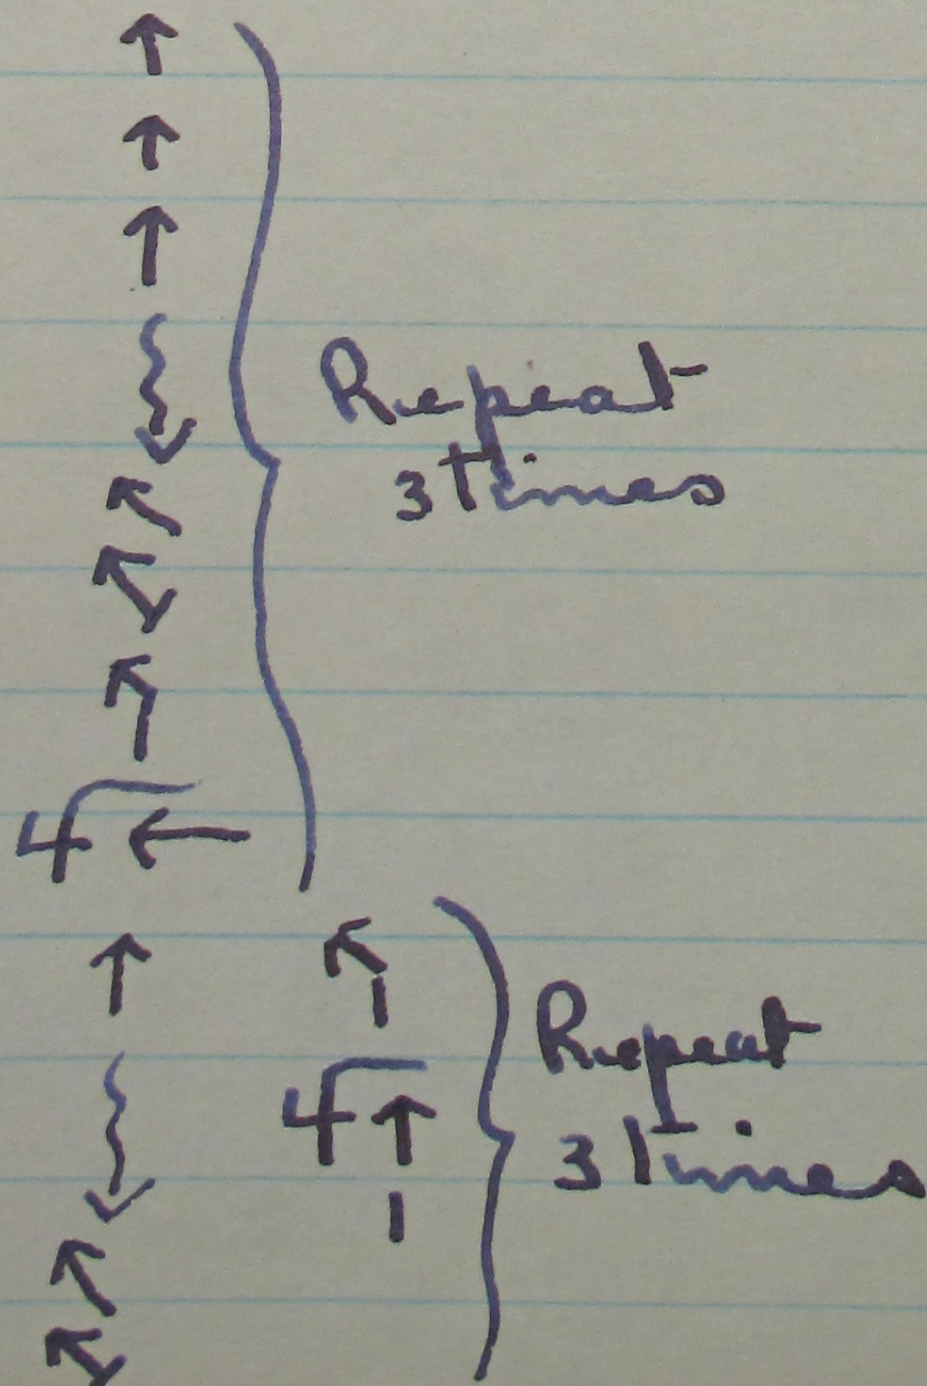 Repeat
3 Times
4
Repeat
4
3 Times